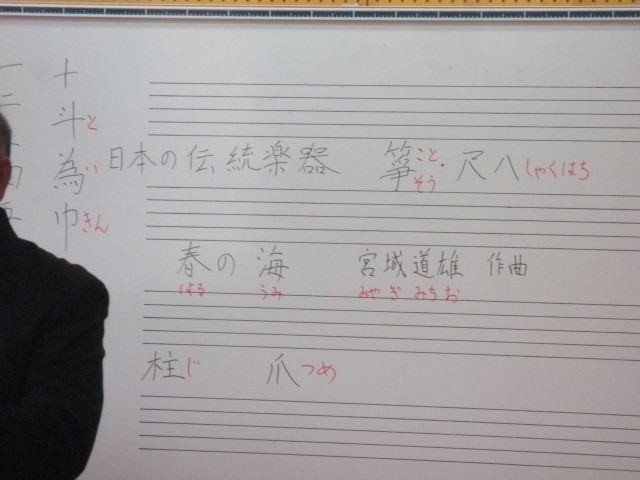 一 十
斗と
為い 日本の伝統楽器 箏こと そう・尺八しゃくはち
巾きん
春の海 宮城道雄 作曲
はる うみ みやぎ みちお
柱じ 爪つめ